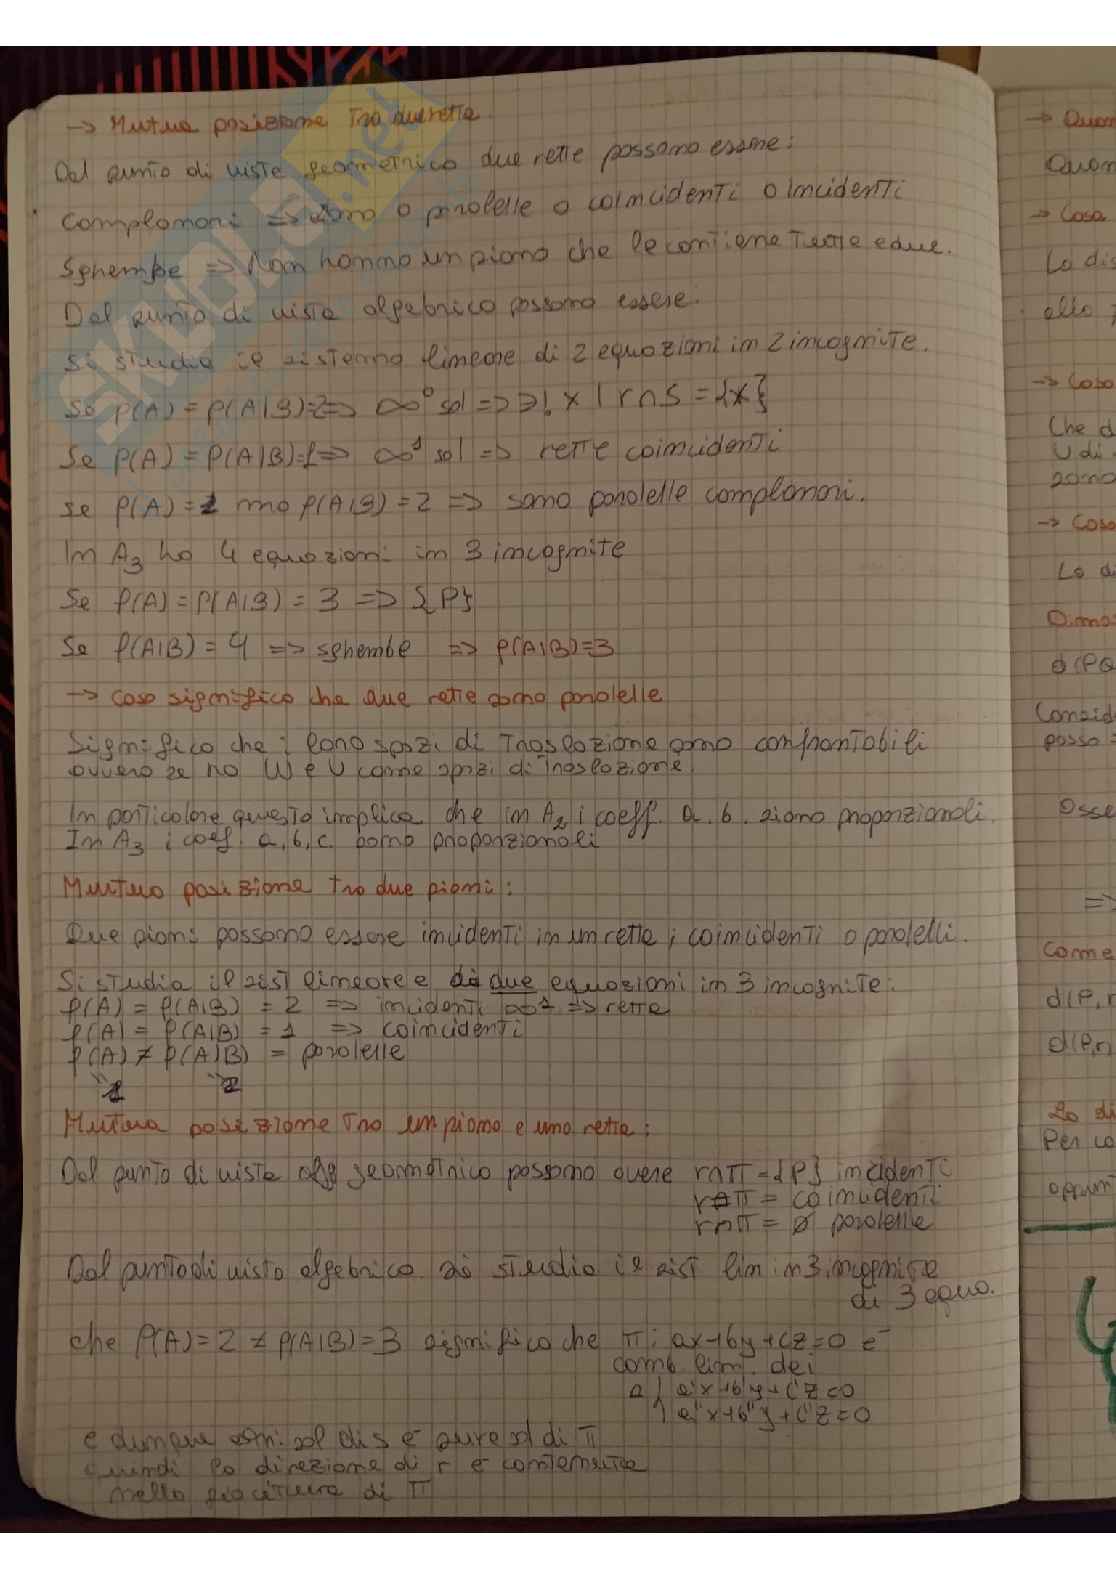 -> Mutua posizione tra due rette
Dal punto di vista geometrico due rette possono essere:
Complanari => sono o parallelle o coincidenti o incidenti
Sghembe => Non hanno un piano che le contiene tutte e due.
Dal punto di vista algebrico possono essere:
Si studia il sistema lineare di 2 equazioni in 2 incognite.
Se ρ(A) = ρ(A|B)=2 => ∞⁰ sol => ∃! x | r∩s = {x}
Se ρ(A) = ρ(A|B)=1 => ∞¹ sol => rette coincidenti
se ρ(A) = 1 ma ρ(A|B) = 2 => sono paralelle complanari.
In A₃ ho 4 equazioni in 3 incognite
Se ρ(A) = ρ(A|B) = 3 => {P}
Se ρ(A|B) = 4 => sghembe => ρ(A|B)=3
-> Cosa significa che due rette sono paralelle
Significa che i loro spazi di traslazione sono confrontabili
ovvero se ho W e U come spazi di traslazione
In particolare questo implica che in A₂ i coeff. a, b. siano proporzionali.
In A₃ i coef. a, b, c. sono proporzionali
Mutua posizione tra due piani:
Due piani possono essere incidenti in un retta, coincidenti o paralelli.
Si studia il sist lineare e di due equazioni in 3 incognite:
ρ(A) = ρ(A|B) = 2 => incidenti ∞¹ => retta
ρ(A) = ρ(A|B) = 1 => coincidenti
ρ(A) ≠ ρ(A|B) = paralelle
"1 "2
Mutua posizione tra un piano e una retta:
Dal punto di vista geometrico possono avere r∩π = {P} incidenti
r∩π = coincidenti
r∩π = ∅ paralelle
Dal punto di vista algebrico si studia il sist lin in 3 incognite
di 3 equa.
che ρ(A) = 2 ≠ ρ(A|B) = 3 significa che π: ax+by+cz=0 è
comb. lin. dei
{ a'x+b'y+c'z=0
a''x+b''y+c''z=0
e dunque ogni sol di s è pure sol di π
quindi la direzione di r è contenuta
nella giacitura di π
-> Quan
Quan
-> Cosa
La dis
allo
-> Cosa
Che d
U di
sono
-> Cosa
La d
Dimos
d(PQ
Consid
posso
Osse
=>
Come
d(P,r
d(P,r)
La di
Per co
appunt